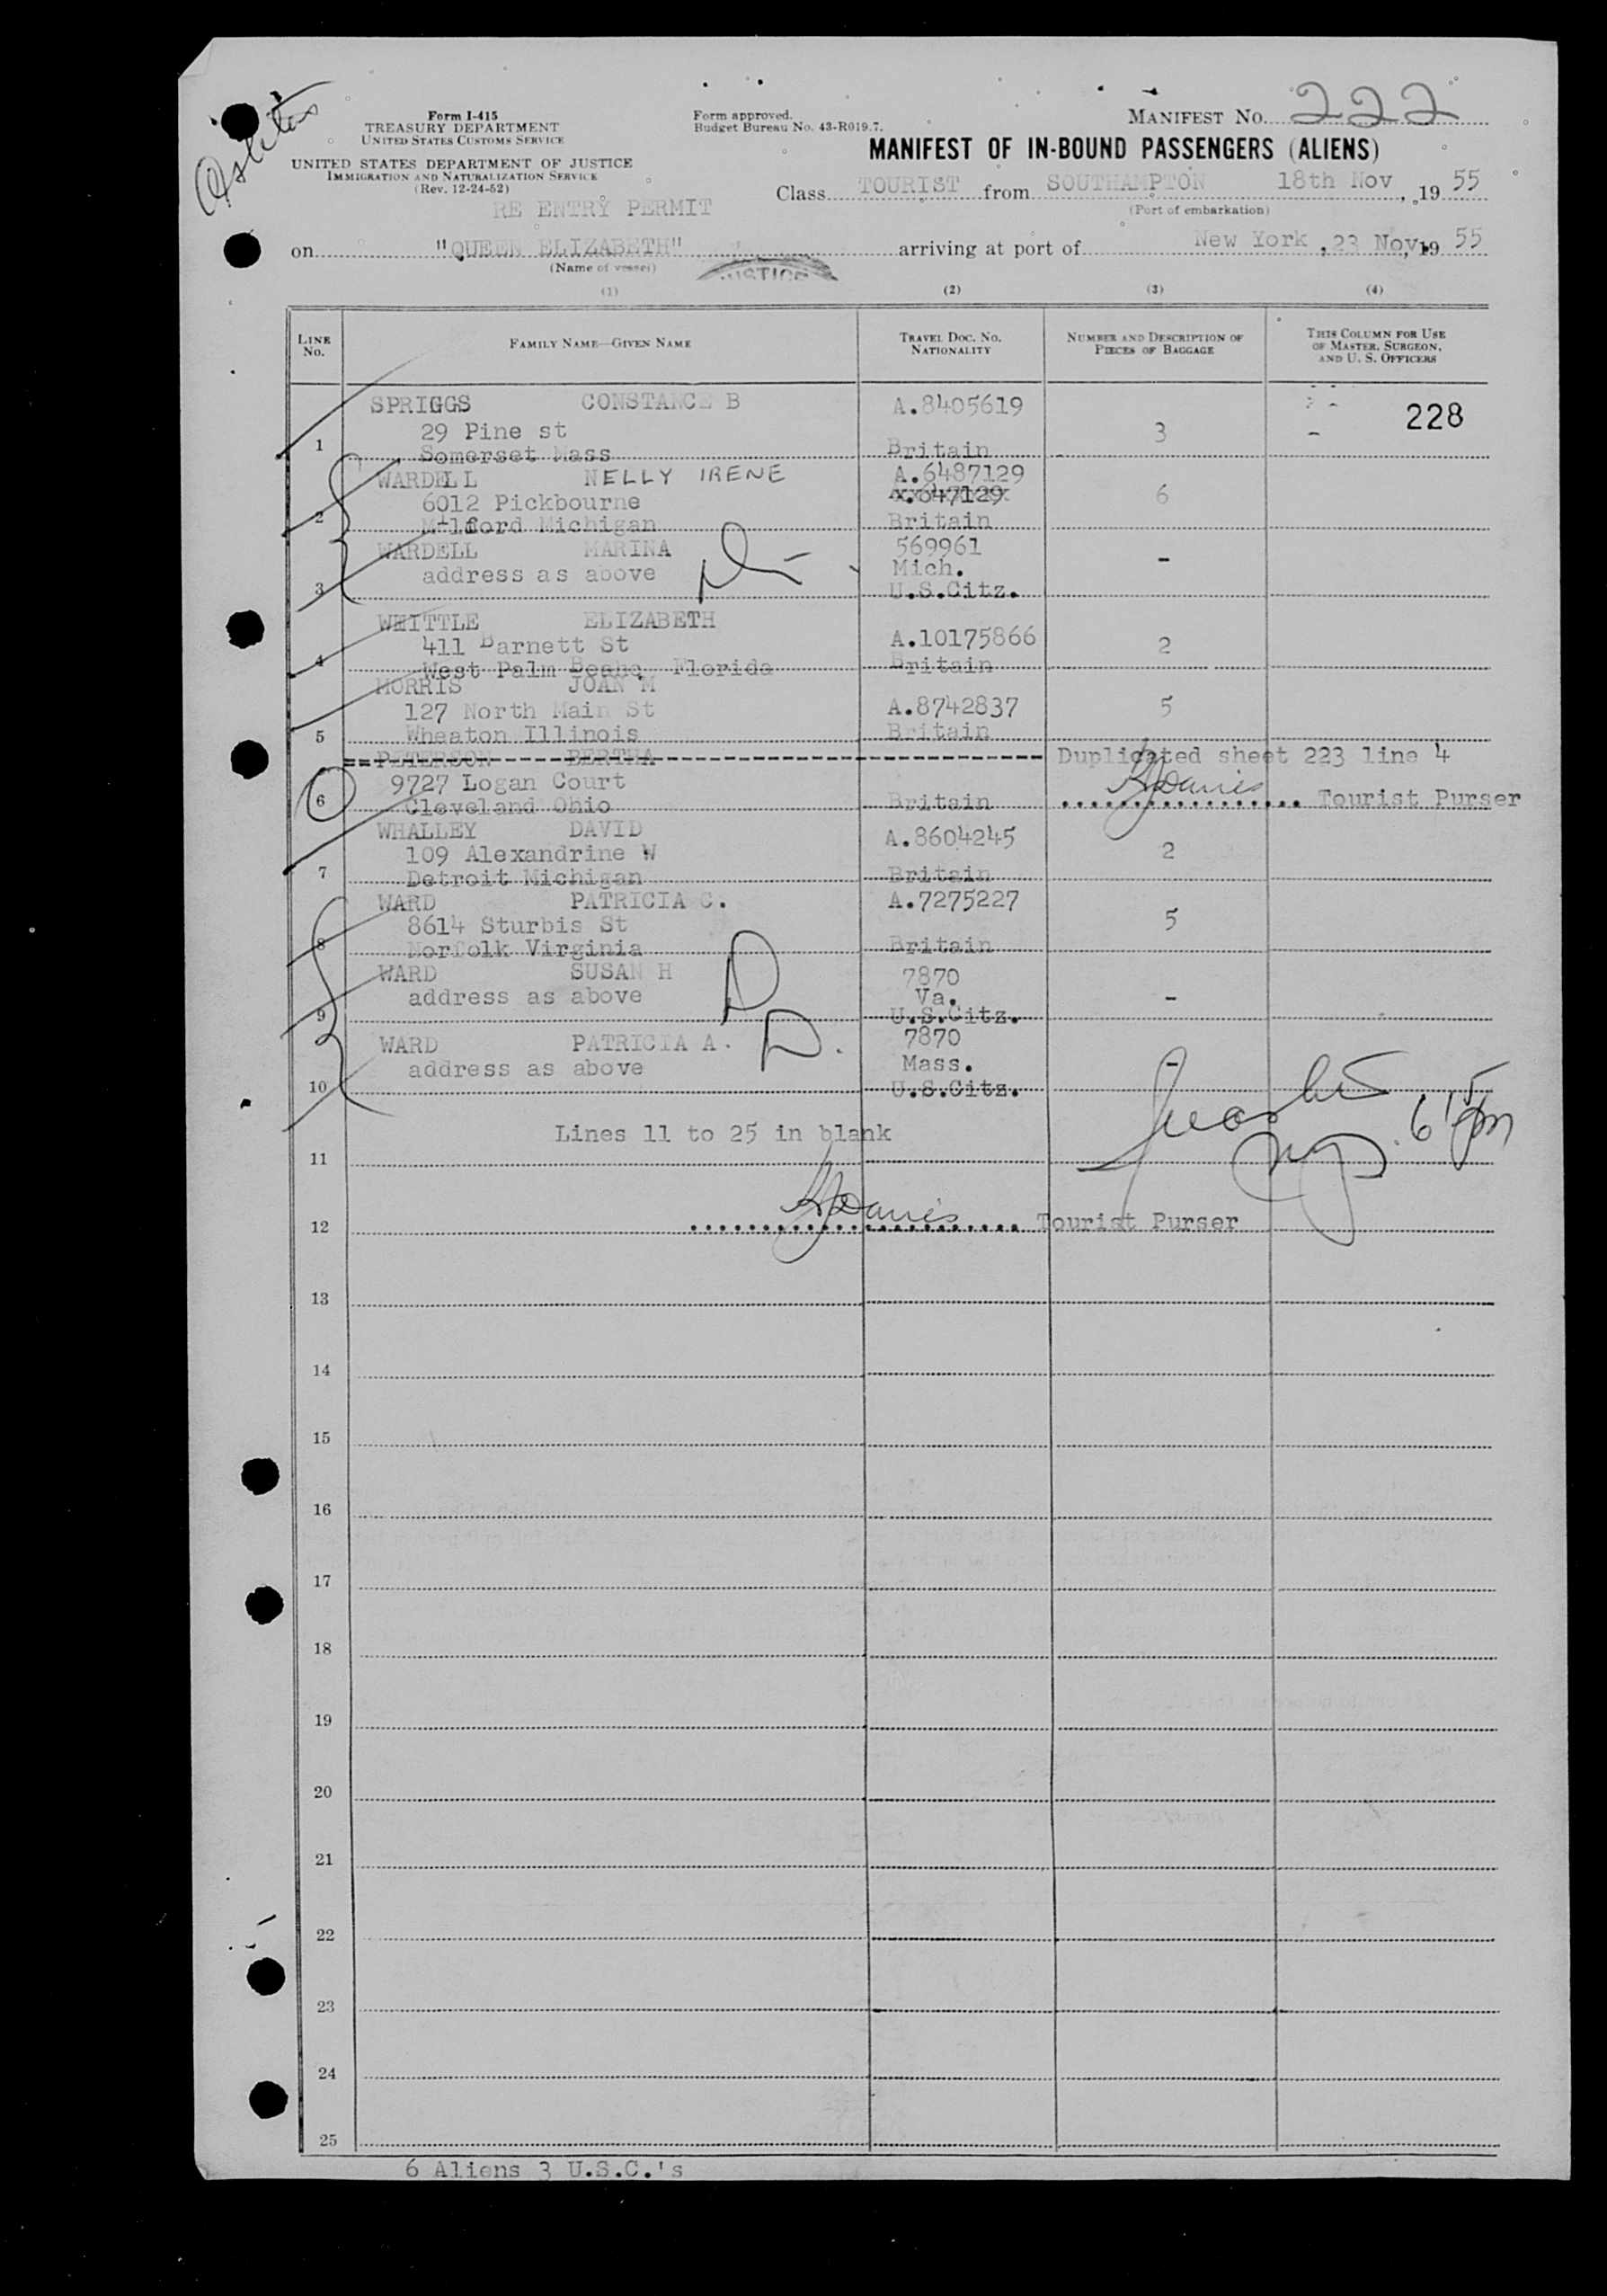 Form I-415
TREASURY DEPARTMENT
UNITED STATES CUSTOMS SERVICE
UNITED STATES DEPARTMENT OF JUSTICE
IMMIGRATION AND NATURALIZATION SERVICE
(Rev. 12-24-52)
Form approved.
Budget Bureau No. 43-R019.7.
MANIFEST NO. 222
MANIFEST OF IN-BOUND PASSENGERS (ALIENS)
Class TOURIST from SOUTHAMPTON 18th Nov, 19 55
(Port of embarkation)
RE ENTRY PERMIT
on "QUEEN ELIZABETH" arriving at port of New York, 23 Nov, 19 55
(Name of vessel)
JUSTICE
(1) (2) (3) (4)
LINE NO. FAMILY NAME—GIVEN NAME TRAVEL DOC. NO. NATIONALITY NUMBER AND DESCRIPTION OF PIECES OF BAGGAGE THIS COLUMN FOR USE OF MASTER, SURGEON, AND U. S. OFFICERS
SPRIGGS CONSTANCE B A.8405619 228
29 Pine st 3
1 Somerset Mass Britain
WARDELL NELLY IRENE A.6487129
6012 Pickbourne .647129 6
2 Milford Michigan Britain
WARDELL MARINA 569961
address as above Mich. -
3 U.S.Citz.
WHITTLE ELIZABETH
411 Barnett St A.10175866 2
4 West Palm Beahc Florida Britain
MORRIS JOAN M
127 North Main St A.8742837 5
5 Wheaton Illinois Britain
PETERSON BERTHA Duplicated sheet 223 line 4
9727 Logan Court
6 Cleveland Ohio Britain Davies Tourist Purser
WHALLEY DAVID A.8604245
109 Alexandrine W 2
7 Detroit Michigan Britain
WARD PATRICIA C. A.7275227
8614 Sturbis St 5
8 Norfolk Virginia Britain
WARD SUSAN H 7870
address as above Va. -
9 U.S.Citz.
WARD PATRICIA A. 7870
address as above Mass. -
10 U.S.Citz.
Lines 11 to 25 in blank
11
Davies Tourist Purser
12
13
14
15
16
17
18
19
20
21
22
23
24
25
6 Aliens 3 U.S.C.'s